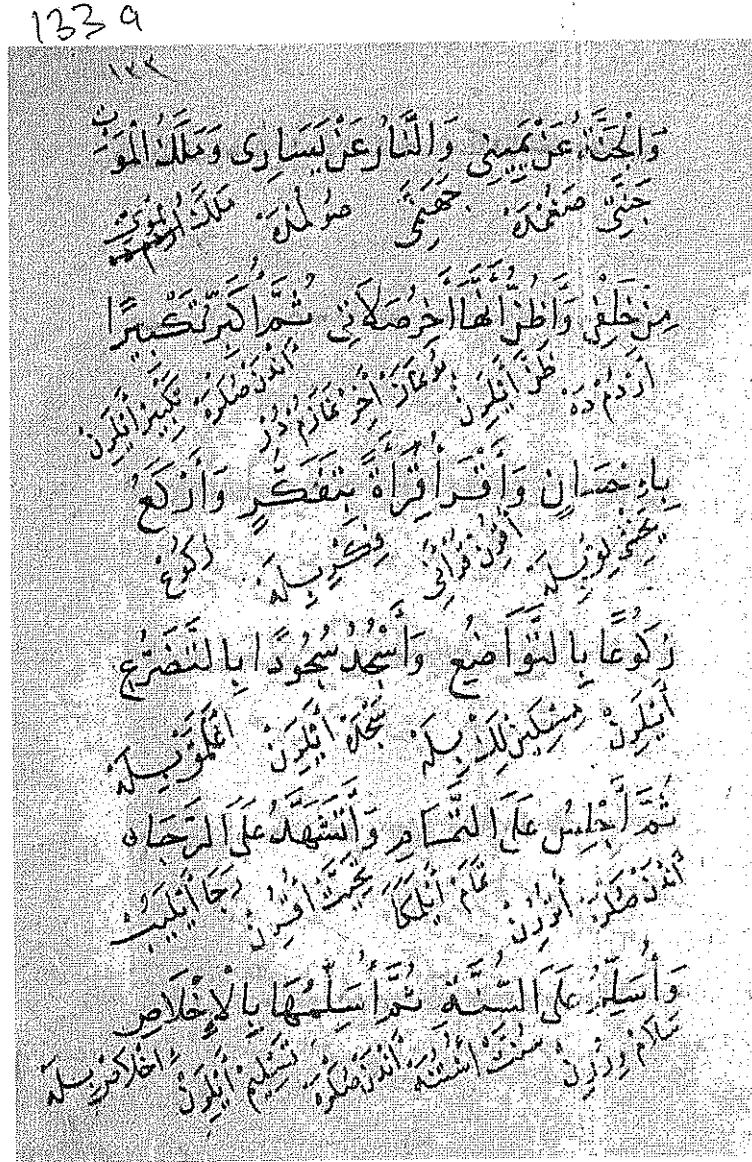 133 a
١٣٣
وَالْجَنَّةُ عَنْ يَمِينِى وَالنَّارُ عَنْ يَسَارِى وَمَلَكُ الْمَوْتِ
جَنَّتِى صَغُمْدَهْ جَهَنَّمِى صُولُمْدَهْ مَلَكُ الْمَوْتِى
مِنْ خَلْفِى وَأَظُنُّ أَنَّهَا أَخِرُ صَلَاتِى ثُمَّ أُكَبِّرُ تَكْبِيرًا
أَرْدُمْدَهْ ظَنْ أَيْلَرِنْ بُو نَمَازْ أَخِرْ نَمَازُمْ دُرْ أَنْدَنْ صُكْرَهْ تَكْبِيرْ أَيْلَرِنْ
بِإِحْسَانٍ وَأَقْرَأُ قِرَأَةً بِتَفَكُّرٍ وَأَرْكَعُ
يَخْشِى لِقْ بِيلَهْ أُقُرِنْ قُرْأَنِى فِكْرْ بِيلَهْ رُكُوعْ
رُكُوعًا بِالتَّوَاضُعِ وَأَسْجُدُ سُجُودًا بِالتَّضَرُّعِ
أَيْلَرِنْ مِسْكِينْ لِكْ بِيلَهْ سَجْدَهْ أَيْلَرِنْ اَغْلَمَقْ بِيلَهْ
ثُمَّ أَجْلِسُ عَلَى التَّمَامِ وَأَتَشَهَّدُ عَلَى الرَّجَاهِ
أَنْدَنْ صُكْرَهْ أُتُرُرِنْ تَمَامْ أَيْلَمَكَا تَحِيَّتْ أُقُرِنْ رَجَا أَيْلَيِبْ
وَأُسَلِّمُ عَلَى السُّنَّةِ ثُمَّ أُسَلِّمُهَا بِالْإِخْلَاصِ
سَلَامْ وِرُرِنْ سُنَّتْ أُسْتُنَهْ أَنْدَنْ صُكْرَهْ تَسْلِيمْ أَيْلَرِنْ اِخْلَاصْ بِيلَهْ